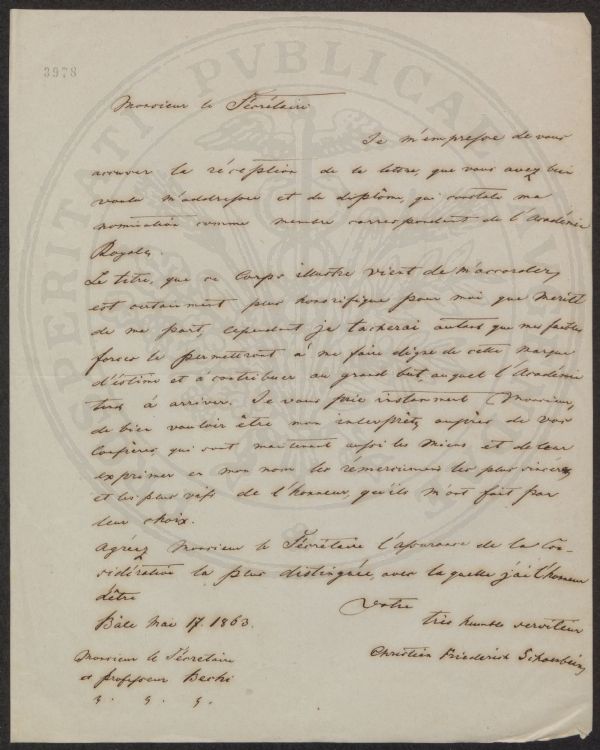 3978
PVBLICAE
VERITATI
Monsieur le Sécrétaire
Je m'empresse de vous
accuser la réception de la lettre, que vous avez bien
voulu m'addresser et du diplôme, qui constate ma
nomination comme membre correspondent de l'Académie
Royale.
Le titre, que ce Corps illustre vient de m'accorder,
est certainment plus honorifique pour moi que merité
de ma part, cependent je tacherai autant que mes faibles
forces le permettront à me faire digne de cette marque
d'éstime et à contribuer au grand but, auquel l'Académie
à arriver. Je vous prie instamment, Monsieur,
de bien vouloir être mon interprète auprès de vos
Confrères, qui sont maintenant aussi les miens et de leur
exprimer en mon nom les remercimens les plus sincères
et les plus vifs de l'honneur, qu'ils m'ont fait par
leur choix.
Agréez Monsieur le Sécrétaire l'assurance de la Con-
sidération la plus distinguée, avec laquelle j'ai l'honneur
d'être
Votre
très humble serviteur
Bâle Mai 17. 1863.
Christian Friederich Schoenbein
Monsieur le Sécrétaire
et professeur